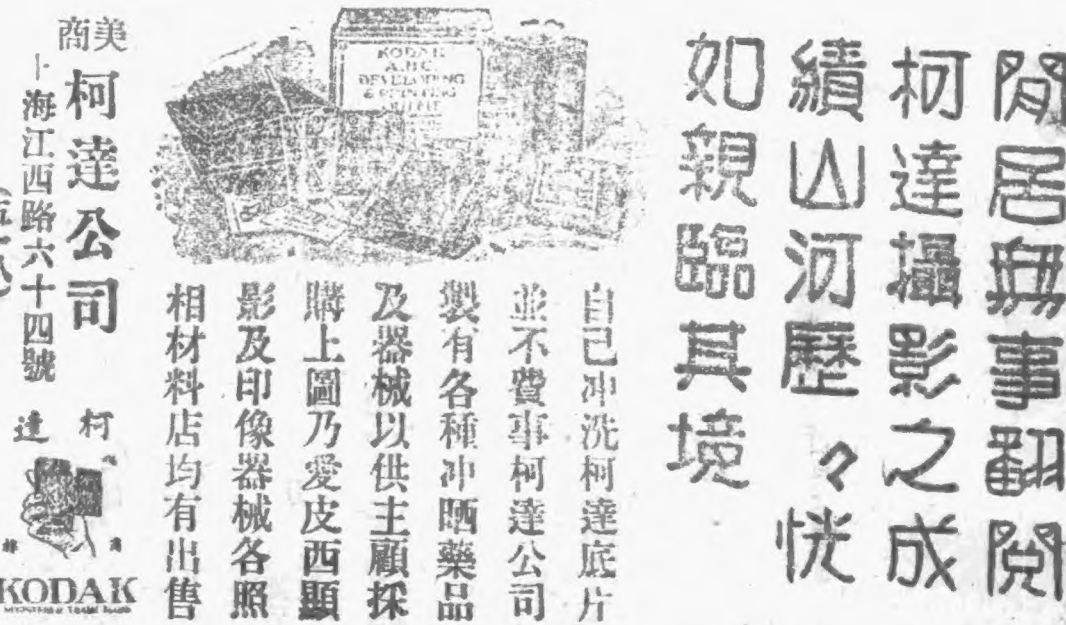 閒居無事翻閱
柯達攝影之成
績山河歷々恍
如親臨其境
KODAK
A.B.C.
DEVELOPING
& PRINTING
OUTFIT
自己冲洗柯達底片
並不費事柯達公司
製有各種冲晒藥品
及器械以供主顧採
購上圖乃愛皮西顯
影及印像器械各照
相材料店均有出售
美商
柯達公司
海江西路六十四號
柯達
KODAK